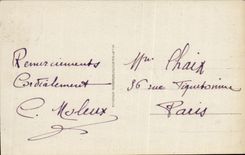 Remerciements
Cordialement
C. Moleux
Mr Chaix
36 rue Tiquetonne
Paris